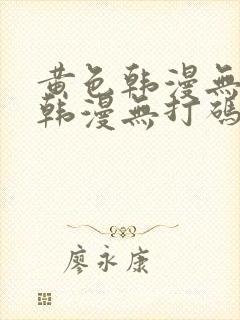 黄色韩漫無
韩漫無打碼
廖永康